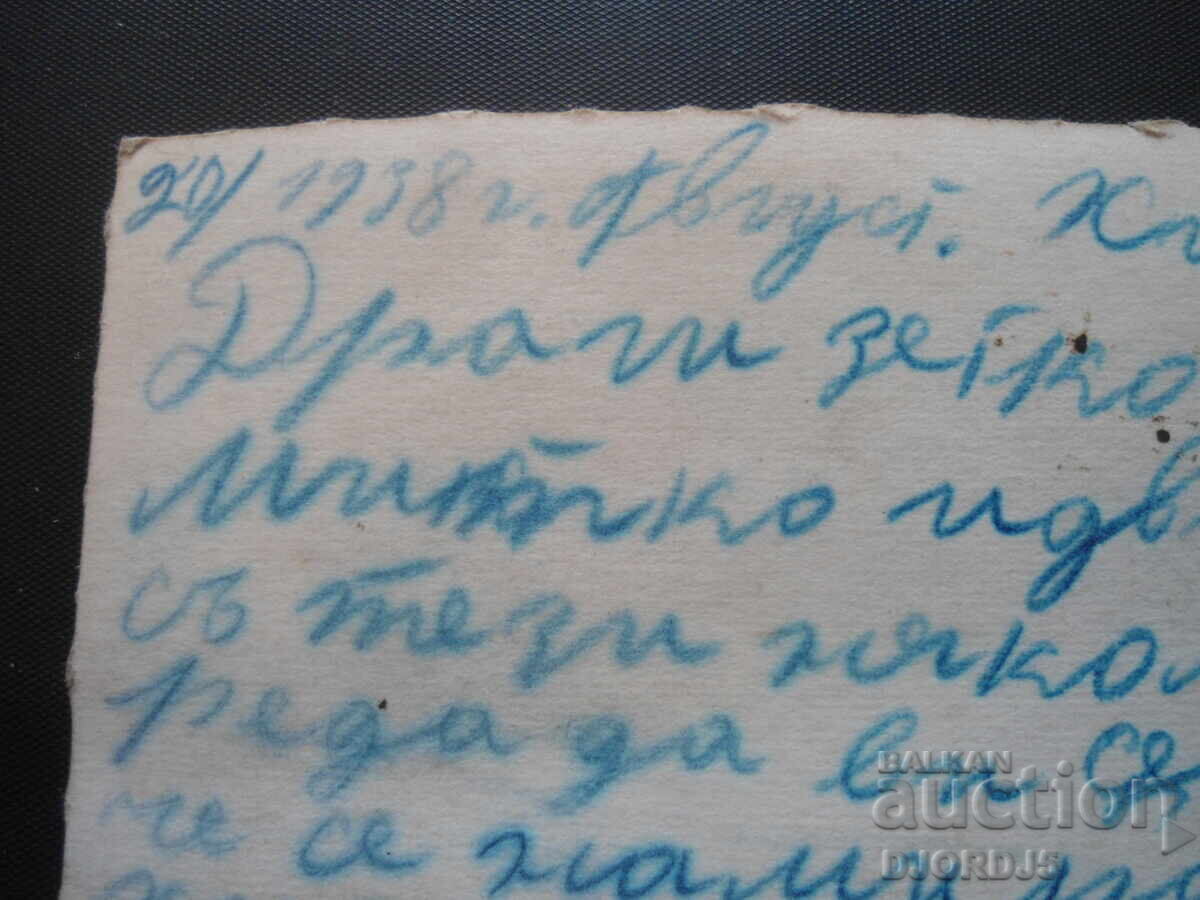 20/ 1938 г. Август. Х
Драги зетко
Митко идв
съ тези някол
реда да ви се
че се нами
BALKAN
auction
DJORDJ5